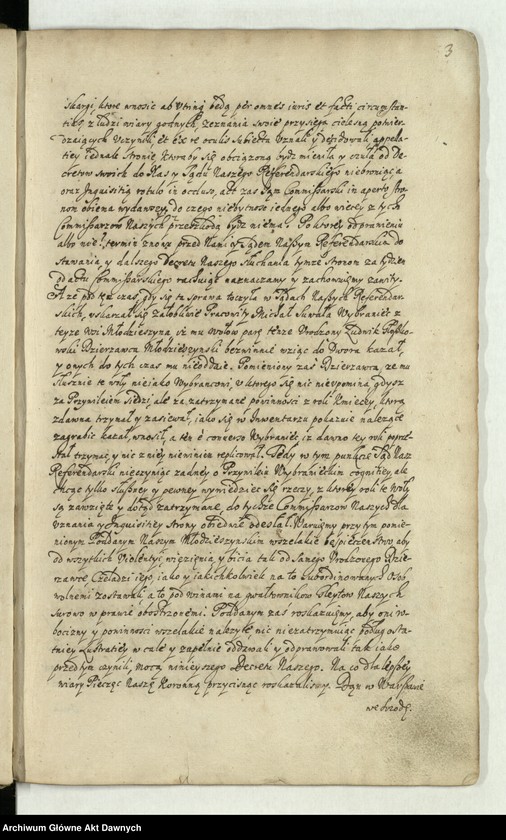 3
skargi, ktore wnosić ab utrinq będą per omnes iuris et facti circumstan-
tias, z ludzi wiary godnych, zeznania swoie przysięgą cielesną potwier-
dzaiących uczynili, et esse rei oculis subiectu uznali y decidowali, appela-
tiey iednak stronie, ktoraby się obciążoną bydz mieniła y czuła od De-
cretow swoich do Nas y Sądu Naszego Referendarskiego niebroniąc
oraz Inquisitią rotulo in occluso, act zas Commissarski in aperto stro-
nom obiema wydawszy, do czego niebytnosc iednego albo więcey z tych
Commissarzow Naszych przeszkodą bydz niema. Po ktorey odprawieniu
albo nie, termin znowu przed Nami y Sądem Naszym Referendarskim do
stawania y dalszego Decretu Naszego słuchania tymże Stronom za tydzień
od actu Commissarskiego naznaczamy y zachowuiemy zawity.
A że pod ten czas, gdy się ta sprawa toczyła w Sądach Naszych Referendar-
skich, uskarżał się żałobliwie Pracowity Michał Sukała Wybraniec z
teyże wsi Młodzieszyna iż mu wołow parę tenże Urodzony Ludwik
Dzierzawca Młodzieszynski bezwinnie wziąc do Dwora kazał,
y onych do tych czas mu nieoddaie. Pomieniony zas Dzierzawca, że mu
słusznie te woły nieiako Wybrancowi, o ktorego się nic nieupomina, gdysz
za Przywileiem siedzi, ale za zatrzymane powinnosci z roli Kmieckiey, ktorą
zdawna trzymał y zasiewał, iako się w Inwentarzu pokazuie należące
zagrabic kazał, wnosił, a ten è converso Wybraniec iż dawno tey roli poprze-
stał trzymac, y nic z niey niewinien replicował. Tedy w tym punkcie Sąd Nasz
Referendarski nieczyniąc żadney o Przywileiu Wybranieckim cognitiey, ale
chcąc tylko słuszney y pewney wywiedziec się rzeczy, z ktorey roli te woły
są zawzięte y dotąd zatrzymane, do tychże Commissarzow Naszych dla
uznania y Inquisitiey Strony obiedwie odesłał. Waruiemy przytym pomie-
nionym Poddanym Naszym Młodzieszynskim wszelakie beśpieczenstwo, aby
od wszytkich violentiy, więzienia, y bicia tak od samego Urodzonego Dzie-
rzawcę Czeladzi iego, iako y iakichkolwiek na to subordinowanych Osob
wolnemi zostawali, a to pod winami na gwałtownikow Gleytow Naszych
surowo w prawie obostrzonemi. Poddanym zas roskazuiemy, aby oni ro-
bocizny y powinnosci wszelakie należyte nic niezatrzymuiąc podług osta-
tniey Lustratiey w cale y zupełnie oddawali y odprawowali tak iako
przed tym czynili, mocą ninieyszego Decretu Naszego. Na co dla lepszey
wiary Pieczęc Naszę Koronną przycisnąc roskazalismy. Dan w Warszawie
we srzodę
Archiwum Główne Akt Dawnych